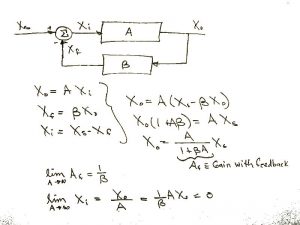 Xs Σ Xi A Xo
Xf β
Xo = A Xi
Xf = β Xo
Xi = Xs - Xf
Xo = A(Xs - βXo)
Xo(1 + Aβ) = A Xs
Xo = A / (1 + βA) Xs
Af ≡ Gain with feedback
lim A→∞ Af = 1/β
lim A→∞ Xi = Xo/A = 1/β A Xs = 0